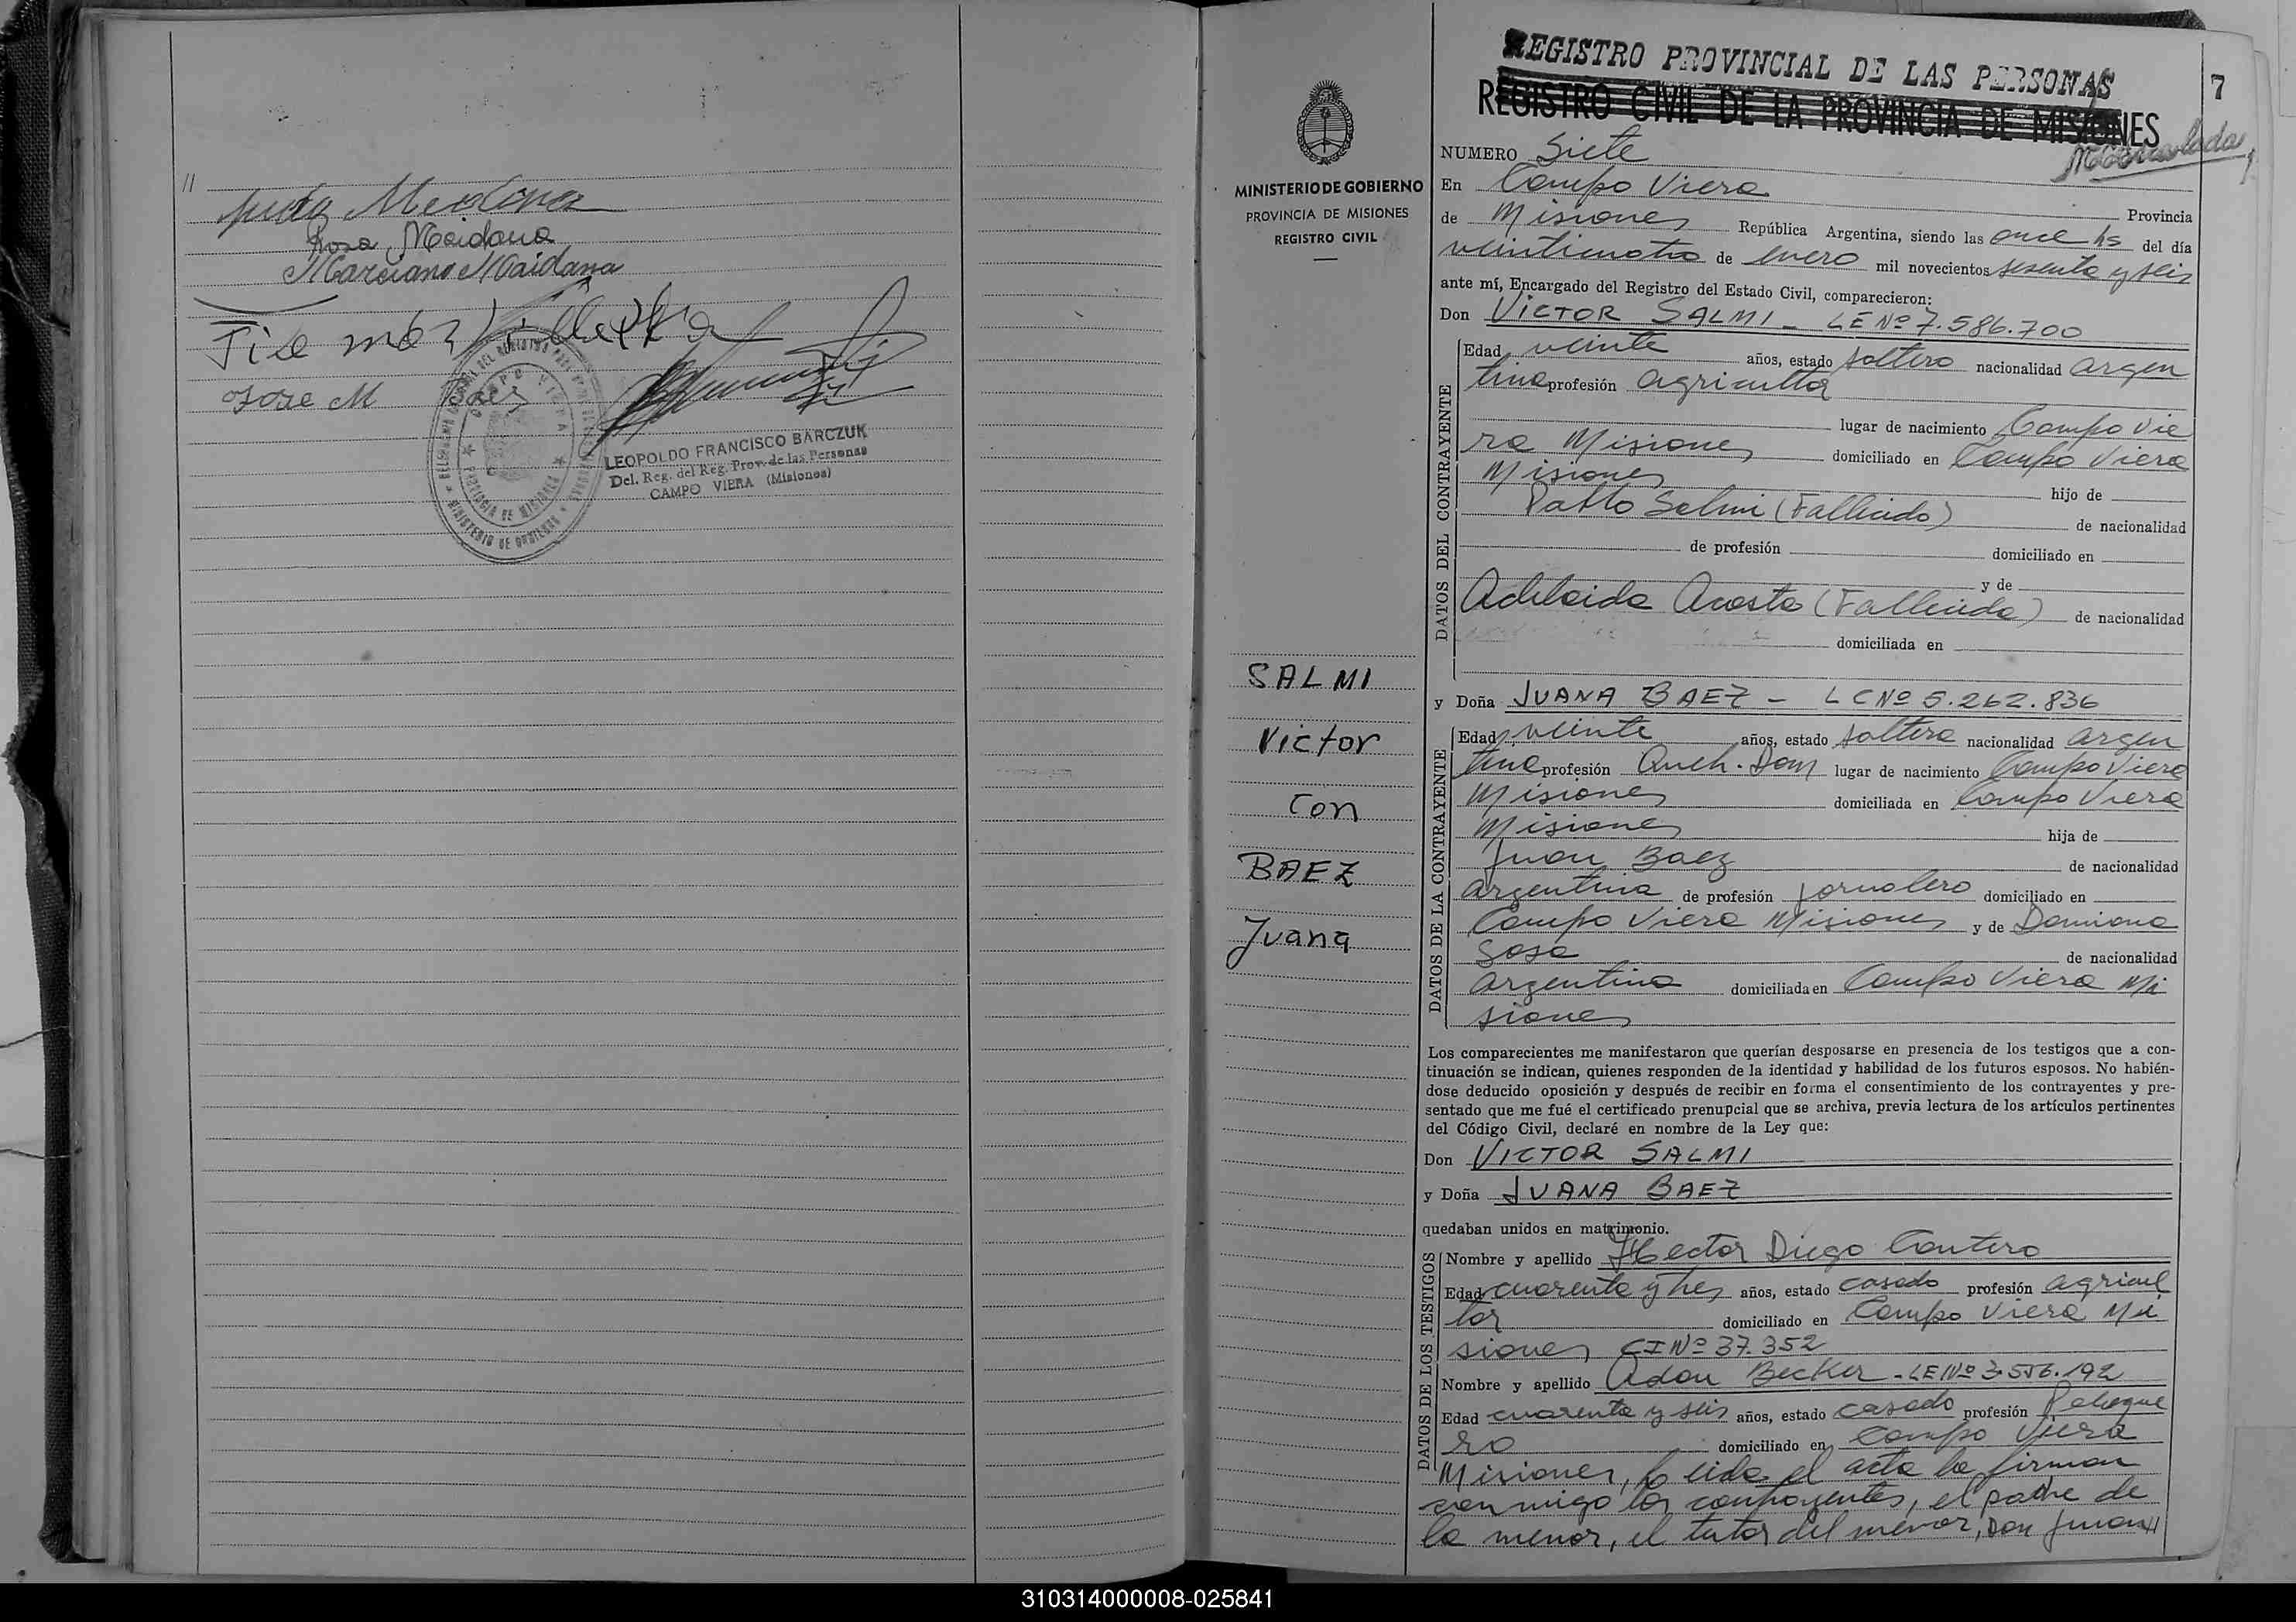 //
Medina
Rosa Maidana
Marciano Maidana
Jose M Baez
LEOPOLDO FRANCISCO BARCZUK
Del. Reg. del Reg. Prov. de las Personas
CAMPO VIERA (Misiones)
REGISTRO PROVINCIAL DE LAS PERSONAS
REGISTRO CIVIL DE LA PROVINCIA DE MISIONES
7
MINISTERIO DE GOBIERNO
PROVINCIA DE MISIONES
REGISTRO CIVIL
SALMI
Victor
con
BAEZ
Juana
NUMERO Siete
En Campo Viera Provincia
de Misiones República Argentina, siendo las once hs del día
veinticuatro de enero mil novecientos sesenta y seis
ante mí, Encargado del Registro del Estado Civil, comparecieron:
Don VICTOR SALMI - LE Nº 7.586.700
DATOS DEL CONTRAYENTE
Edad veinte años, estado soltero nacionalidad argen
tina profesión agricultor
lugar de nacimiento Campo Vie
ra Misiones domiciliado en Campo Viera
Misiones hijo de
Pablo Salmi (Fallecido) de nacionalidad
de profesión domiciliado en
y de
Adelaida Acosta (Fallecida) de nacionalidad
domiciliada en
y Doña JUANA BAEZ - LC Nº 5.262.836
DATOS DE LA CONTRAYENTE
Edad veinte años, estado soltera nacionalidad argen
tina profesión Queh. Dom lugar de nacimiento Campo Viera
Misiones domiciliada en Campo Viera
Misiones hija de
Juan Baez de nacionalidad
argentina de profesión jornalero domiciliado en
Campo Viera Misiones y de Damiana
Sosa de nacionalidad
argentina domiciliada en Campo Viera Mi
siones
Los comparecientes me manifestaron que querían desposarse en presencia de los testigos que a con-
tinuación se indican, quienes responden de la identidad y habilidad de los futuros esposos. No habién-
dose deducido oposición y después de recibir en forma el consentimiento de los contrayentes y pre-
sentado que me fué el certificado prenupcial que se archiva, previa lectura de los artículos pertinentes
del Código Civil, declaré en nombre de la Ley que:
Don VICTOR SALMI
y Doña JUANA BAEZ
quedaban unidos en matrimonio.
DATOS DE LOS TESTIGOS
Nombre y apellido Hector Diego Cantero
Edad cuarenta y tres años, estado casado profesión agricul
tor domiciliado en Campo Viera Mi
siones CI Nº 37.352
Nombre y apellido Adan Becker - LE Nº 3.556.192
Edad cuarenta y seis años, estado casado profesión Peluque
ro domiciliado en Campo Viera
Misiones, leida el acta la firman
conmigo los contrayentes, el padre de
la menor, el tutor del menor, Don Juan //
310314000008-025841